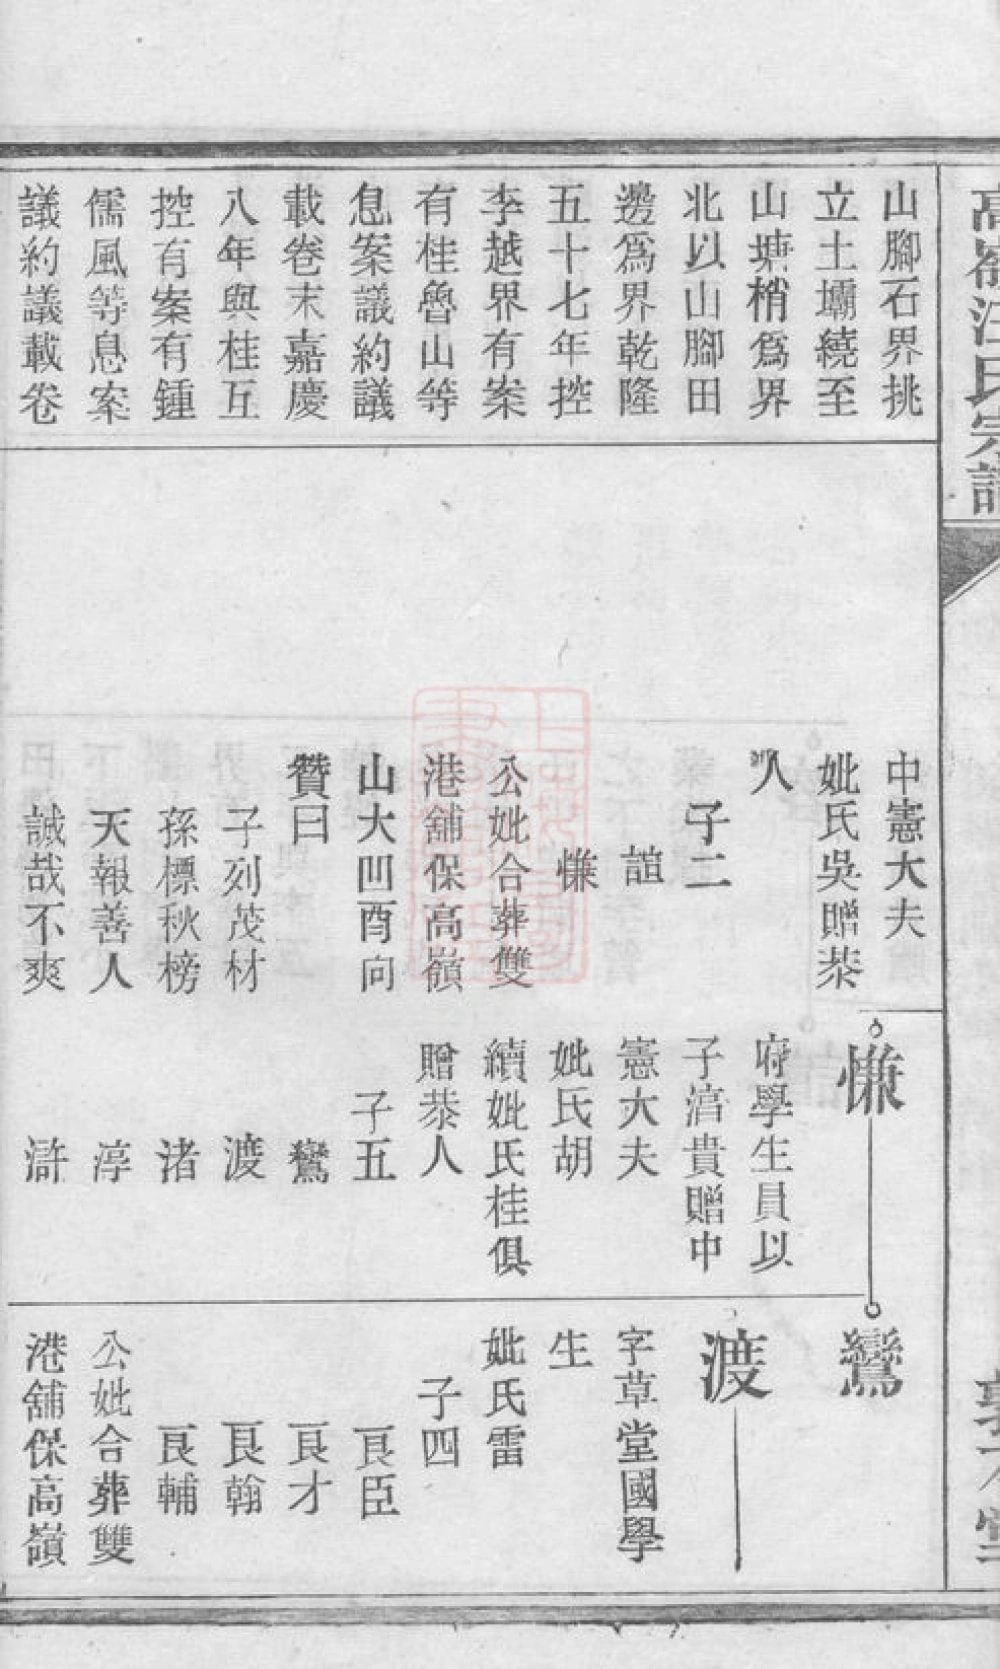 高嶺汪氏宗譜
山腳石界挑
立土壩繞至
山塘梢爲界
北以山腳田
邊爲界乾隆
五十七年控
李越界有案
有桂魯山等
息案議約議
載卷末嘉慶
八年與桂互
控有案有鍾
儒風等息案
議約議載卷
中憲大夫
妣氏吳贈恭
人
子二
誼
慊
公妣合葬雙
港舖保高嶺
山大凹酉向
贊曰
子列茂材
孫標秋榜
天報善人
誠哉不爽
慊
府學生員以
子湇貴贈中
憲大夫
妣氏胡
續妣氏桂俱
贈恭人
子五
鸞
渡
渚
淳
滸
鸞
渡
字草堂國學
生
妣氏雷
子四
良臣
良才
良翰
良輔
公妣合葬雙
港舖保高嶺